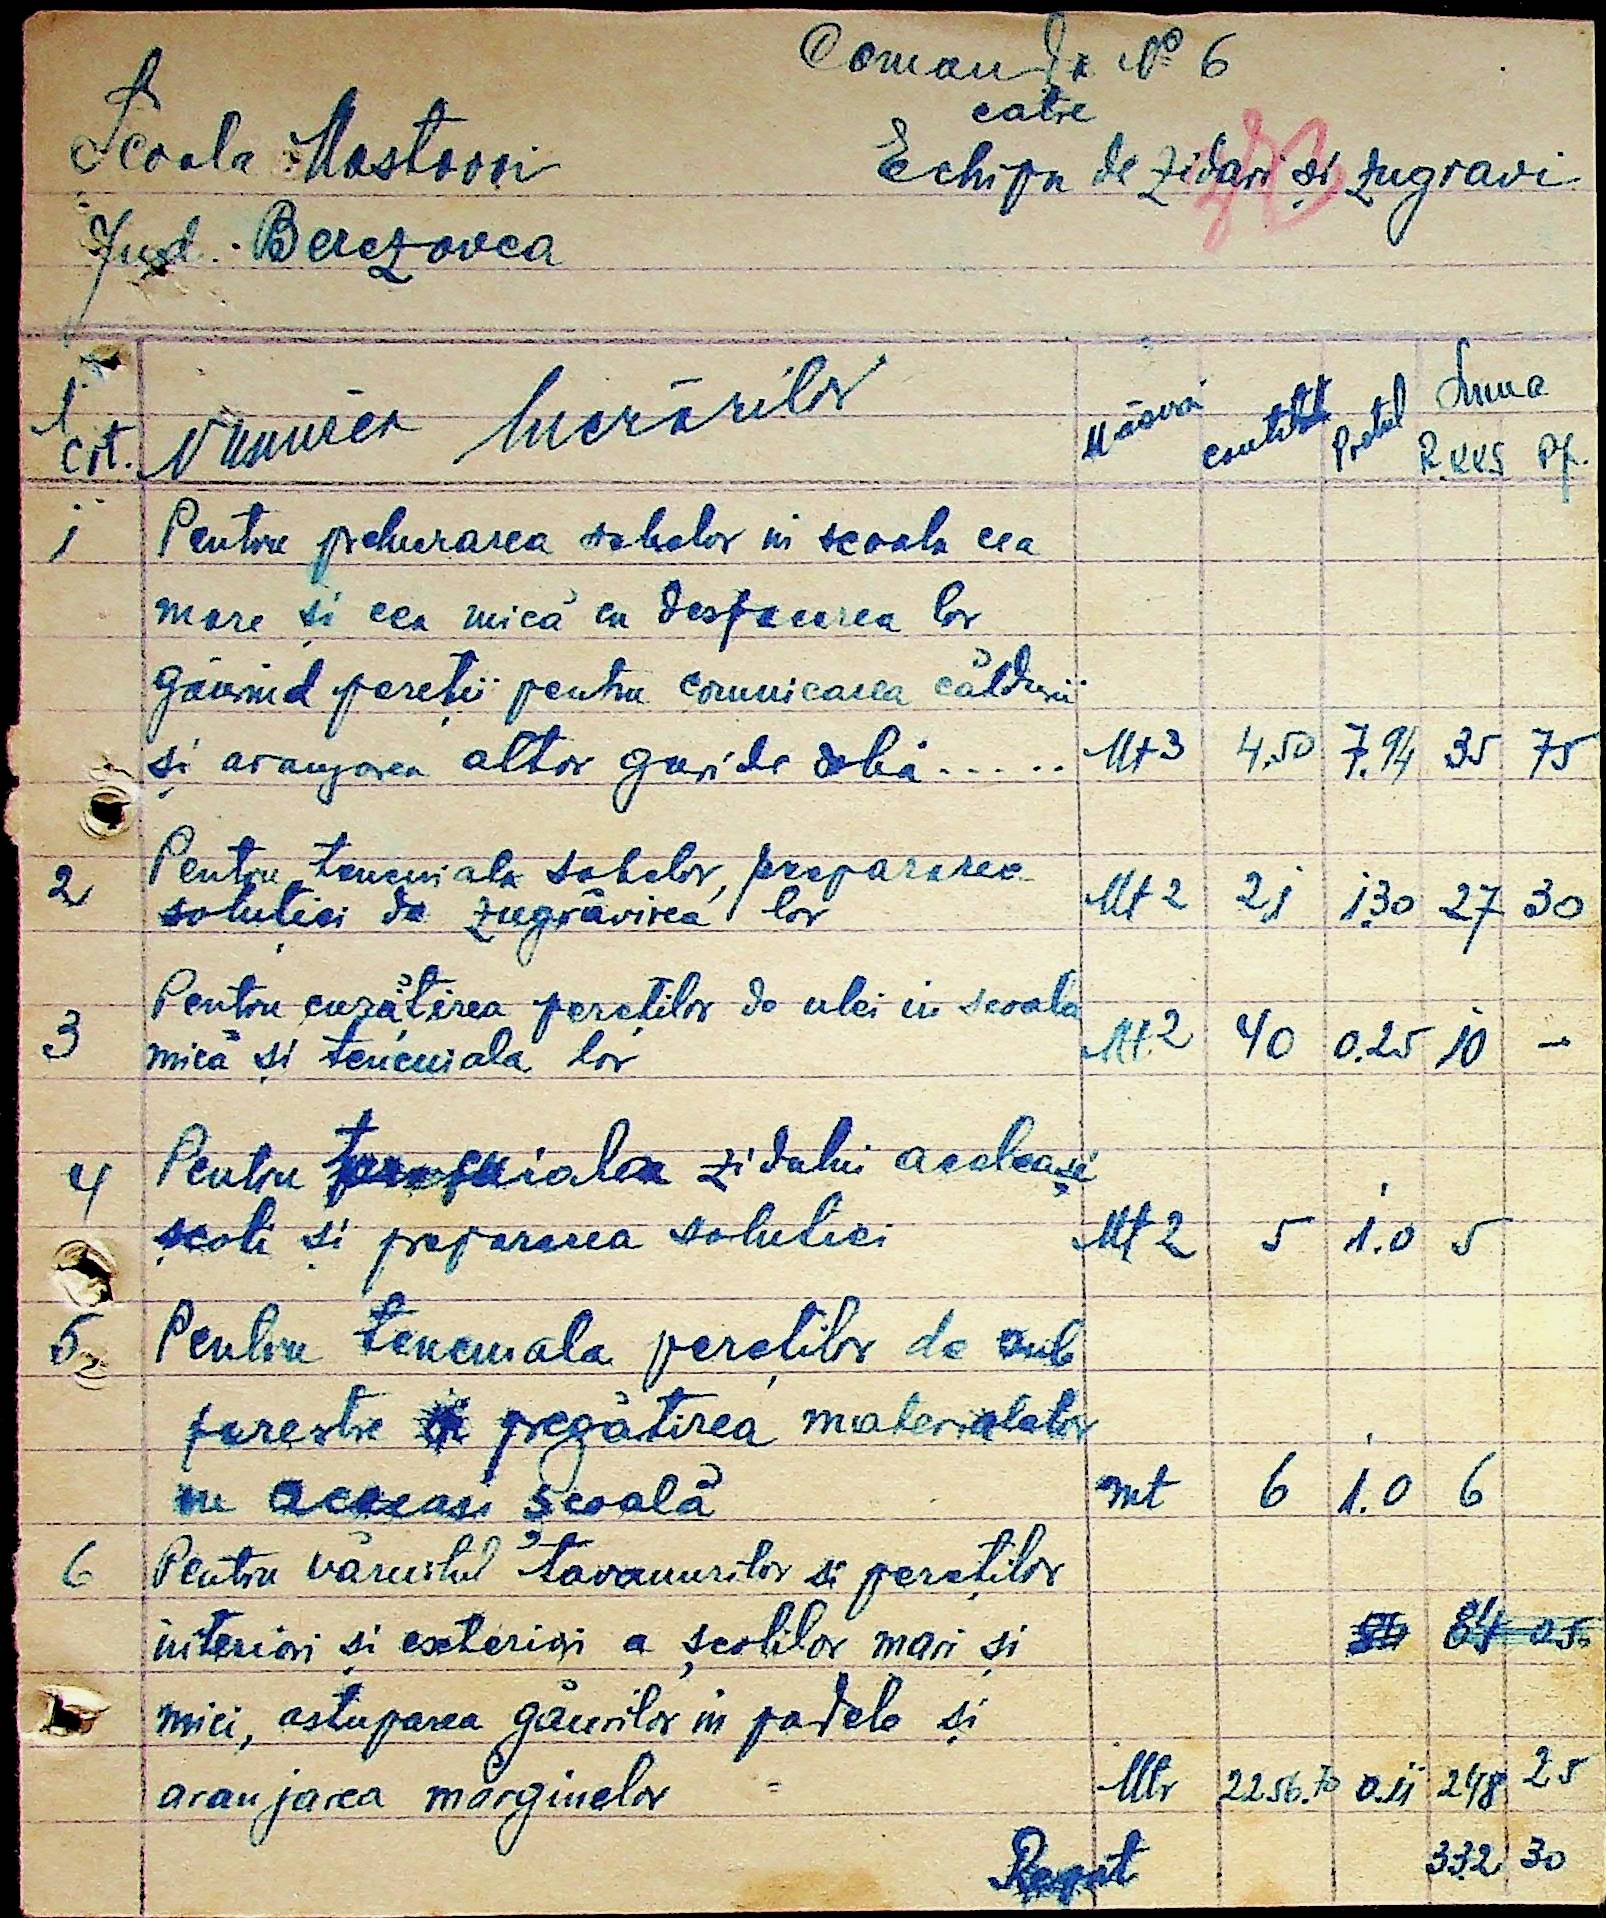 Comanda № 6
catre
Echipa de zidari si zugravi
Scoala Mostovoi
Jud. Berezovca
crt. Numirea lucrărilor Măsura cantitat Pretul Suma RKKS Pf.
1 Pentru prelucrarea sobelor in scoala cea
mare și cea mică cu desfacerea lor
găurind pereții pentru comunicarea căldurii
și aranjarea altor guri de sobă..... Mt3 4.50 7.94 35 75
2 Pentru tencuiala sobelor, prepararea
soluției de zugrăvirea lor Mt2 21 1.30 27 30
3 Pentru curățirea pereților de ulei in scoala
mică și tencuiala lor Mt.2 40 0.25 10 -
4 Pentru tencuiala zidului aceleași
școli și prepararea solutiei Mt2 5 1.0 5
5 Pentru tencuiala pereților de sub
ferestre și pregătirea materialelor
in aceeasi școală mt 6 1.0 6
6 Pentru văruitul tavanurilor si pereților
interiori și exteriori a școlilor mari și
mici, astuparea găurilor in podele și
aranjarea marginelor Mtr 2256.70 0.11 248 25
Report 332 30